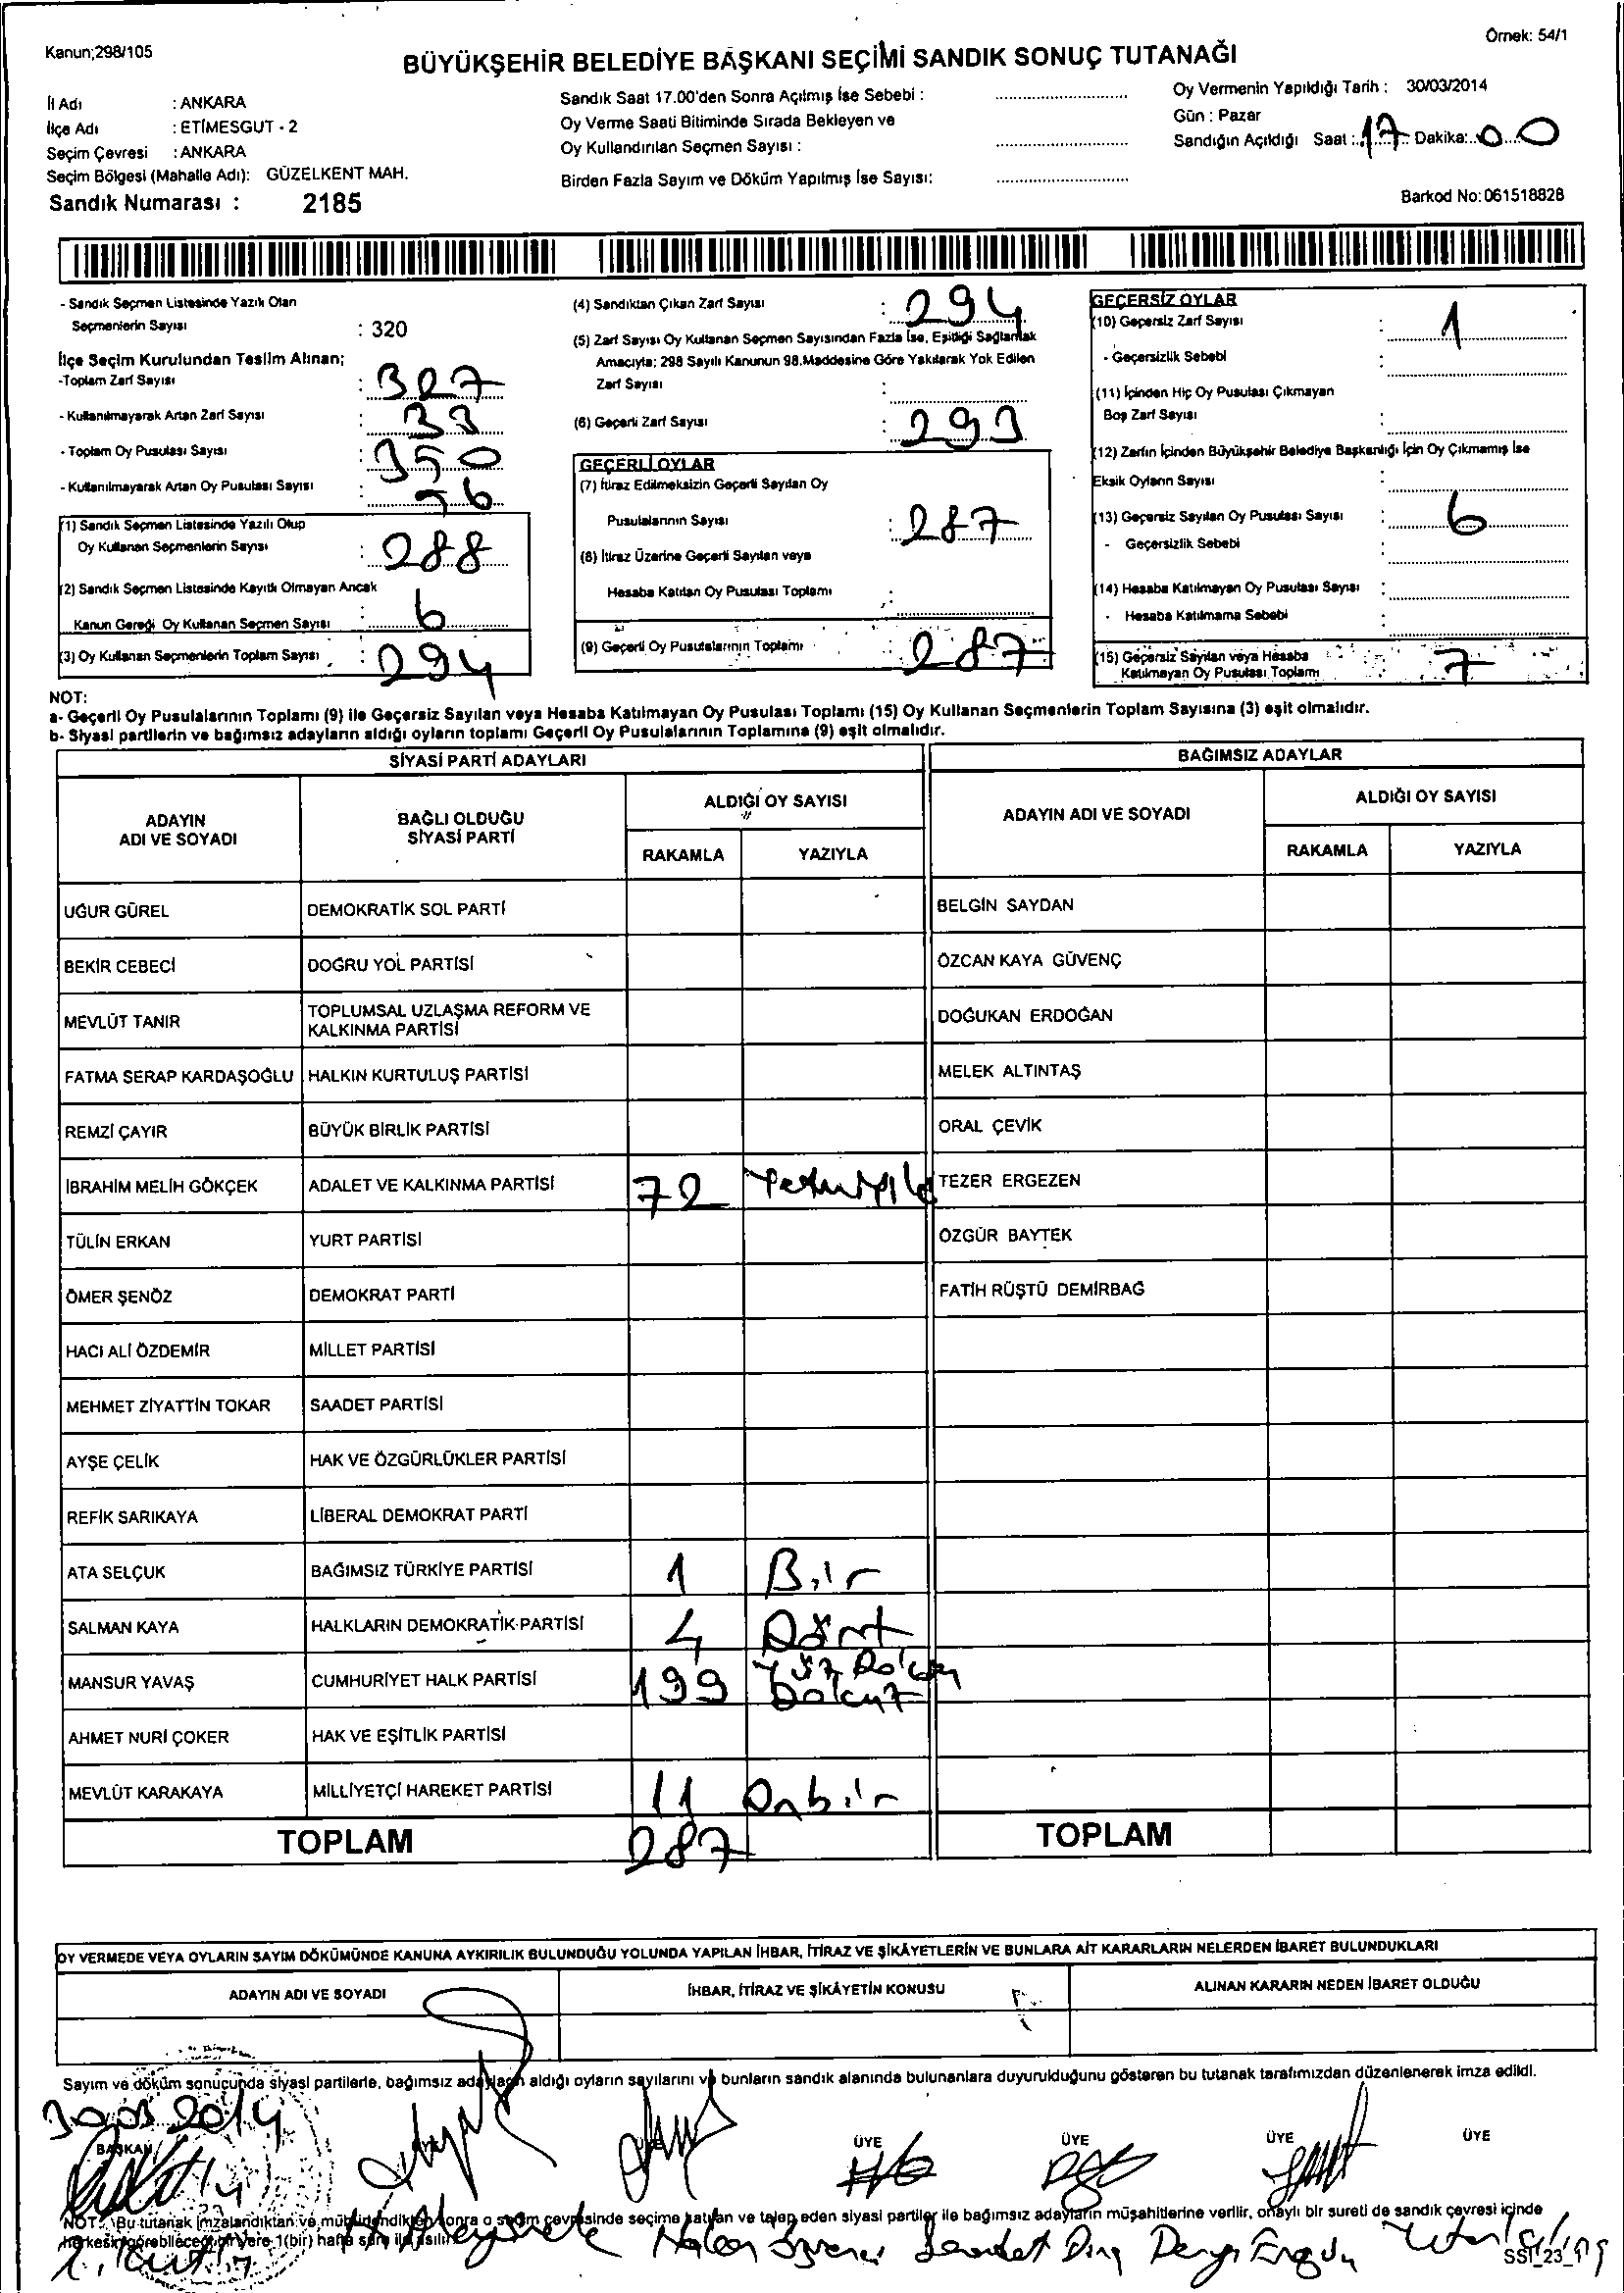 Kanun;298/105
Örnek: 54/1
BÜYÜKŞEHİR BELEDİYE BAŞKANI SEÇİMİ SANDIK SONUÇ TUTANAĞI
İl Adı : ANKARA
İlçe Adı : ETİMESGUT - 2
Seçim Çevresi : ANKARA
Seçim Bölgesi (Mahalle Adı): GÜZELKENT MAH.
Sandık Numarası : 2185
Sandık Saat 17.00'den Sonra Açılmış İse Sebebi :
Oy Verme Saati Bitiminde Sırada Bekleyen ve
Oy Kullandırılan Seçmen Sayısı :
Birden Fazla Sayım ve Döküm Yapılmış İse Sayısı:
Oy Vermenin Yapıldığı Tarih : 30/03/2014
Gün : Pazar
Sandığın Açıldığı Saat : 17 Dakika: 00
Barkod No:061518828
- Sandık Seçmen Listesinde Yazılı Olan
Seçmenlerin Sayısı : 320
İlçe Seçim Kurulundan Teslim Alınan;
-Toplam Zarf Sayısı : 327
- Kullanılmayarak Artan Zarf Sayısı : 33
- Toplam Oy Pusulası Sayısı : 350
- Kullanılmayarak Artan Oy Pusulası Sayısı : 56
(1) Sandık Seçmen Listesinde Yazılı Olup
Oy Kullanan Seçmenlerin Sayısı : 288
(2) Sandık Seçmen Listesinde Kayıtlı Olmayan Ancak
Kanun Gereği Oy Kullanan Seçmen Sayısı : 6
(3) Oy Kullanan Seçmenlerin Toplam Sayısı : 294
(4) Sandıktan Çıkan Zarf Sayısı : 294
(5) Zarf Sayısı Oy Kullanan Seçmen Sayısından Fazla İse, Eşitliği Sağlamak
Amacıyla; 298 Sayılı Kanunun 98.Maddesine Göre Yakılarak Yok Edilen
Zarf Sayısı :
(6) Geçerli Zarf Sayısı : 293
GEÇERLİ OYLAR
(7) İtiraz Edilmeksizin Geçerli Sayılan Oy
Pusulalarının Sayısı : 287
(8) İtiraz Üzerine Geçerli Sayılan veya
Hesaba Katılan Oy Pusulası Toplamı :
(9) Geçerli Oy Pusulalarının Toplamı : 287
GEÇERSİZ OYLAR
(10) Geçersiz Zarf Sayısı : 1
- Geçersizlik Sebebi :
(11) İçinden Hiç Oy Pusulası Çıkmayan
Boş Zarf Sayısı :
(12) Zarfın İçinden Büyükşehir Belediye Başkanlığı İçin Oy Çıkmamış İse
Eksik Oyların Sayısı :
(13) Geçersiz Sayılan Oy Pusulası Sayısı : 6
- Geçersizlik Sebebi :
(14) Hesaba Katılmayan Oy Pusulası Sayısı :
- Hesaba Katılmama Sebebi :
(15) Geçersiz Sayılan veya Hesaba
Katılmayan Oy Pusulası Toplamı : 7
NOT:
a- Geçerli Oy Pusulalarının Toplamı (9) ile Geçersiz Sayılan veya Hesaba Katılmayan Oy Pusulası Toplamı (15) Oy Kullanan Seçmenlerin Toplam Sayısına (3) eşit olmalıdır.
b- Siyasi partilerin ve bağımsız adayların aldığı oyların toplamı Geçerli Oy Pusulalarının Toplamına (9) eşit olmalıdır.
SİYASİ PARTİ ADAYLARI
ADAYIN ADI VE SOYADI BAĞLI OLDUĞU SİYASİ PARTİ ALDIĞI OY SAYISI
RAKAMLA YAZIYLA
UĞUR GÜREL DEMOKRATİK SOL PARTİ
BEKİR CEBECİ DOĞRU YOL PARTİSİ
MEVLÜT TANIR TOPLUMSAL UZLAŞMA REFORM VE KALKINMA PARTİSİ
FATMA SERAP KARDAŞOĞLU HALKIN KURTULUŞ PARTİSİ
REMZİ ÇAYIR BÜYÜK BİRLİK PARTİSİ
İBRAHİM MELİH GÖKÇEK ADALET VE KALKINMA PARTİSİ 72 Yetmişiki
TÜLİN ERKAN YURT PARTİSİ
ÖMER ŞENÖZ DEMOKRAT PARTİ
HACI ALİ ÖZDEMİR MİLLET PARTİSİ
MEHMET ZİYATTİN TOKAR SAADET PARTİSİ
AYŞE ÇELİK HAK VE ÖZGÜRLÜKLER PARTİSİ
REFİK SARIKAYA LİBERAL DEMOKRAT PARTİ
ATA SELÇUK BAĞIMSIZ TÜRKİYE PARTİSİ 1 Bir
SALMAN KAYA HALKLARIN DEMOKRATİK PARTİSİ 4 Dört
MANSUR YAVAŞ CUMHURİYET HALK PARTİSİ 199 Yüz Doksan Dokuz
AHMET NURİ ÇOKER HAK VE EŞİTLİK PARTİSİ
MEVLÜT KARAKAYA MİLLİYETÇİ HAREKET PARTİSİ 11 Onbir
TOPLAM 287
BAĞIMSIZ ADAYLAR
ADAYIN ADI VE SOYADI ALDIĞI OY SAYISI
RAKAMLA YAZIYLA
BELGİN SAYDAN
ÖZCAN KAYA GÜVENÇ
DOĞUKAN ERDOĞAN
MELEK ALTINTAŞ
ORAL ÇEVİK
TEZER ERGEZEN
ÖZGÜR BAYTEK
FATİH RÜŞTÜ DEMİRBAĞ
TOPLAM
OY VERMEDE VEYA OYLARIN SAYIM DÖKÜMÜNDE KANUNA AYKIRILIK BULUNDUĞU YOLUNDA YAPILAN İHBAR, İTİRAZ VE ŞİKÂYETLERİN VE BUNLARA AİT KARARLARIN NELERDEN İBARET BULUNDUKLARI
ADAYIN ADI VE SOYADI İHBAR, İTİRAZ VE ŞİKÂYETİN KONUSU ALINAN KARARIN NEDEN İBARET OLDUĞU
Sayım ve döküm sonucunda siyasi partilerle, bağımsız adayların aldığı oyların sayılarını ve bunların sandık alanında bulunanlara duyurulduğunu gösteren bu tutanak tarafımızdan düzenlenerek imza edildi.
30.03.2014
BAŞKAN ÜYE ÜYE ÜYE ÜYE
NOT: Bu tutanak imzalandıktan ve mühürlendikten sonra o seçim çevresinde seçime katılan ve talep eden siyasi partiler ile bağımsız adayların müşahitlerine verilir, onaylı bir sureti de sandık çevresi içinde
herkesin görebileceği bir yere 1(bir) hafta süre ile asılır.
SSI_23_1